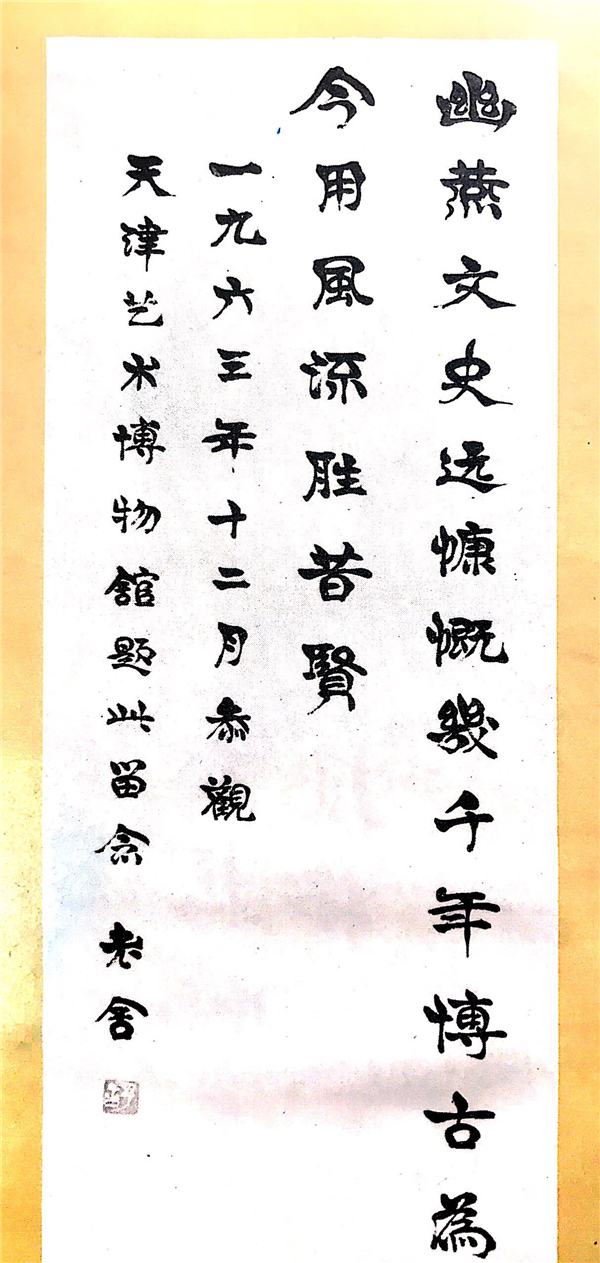 幽燕文史远慷慨幾千年博古為
今用風流胜昔賢
一九六三年十二月参觀
天津艺术博物館题此留念 老舍